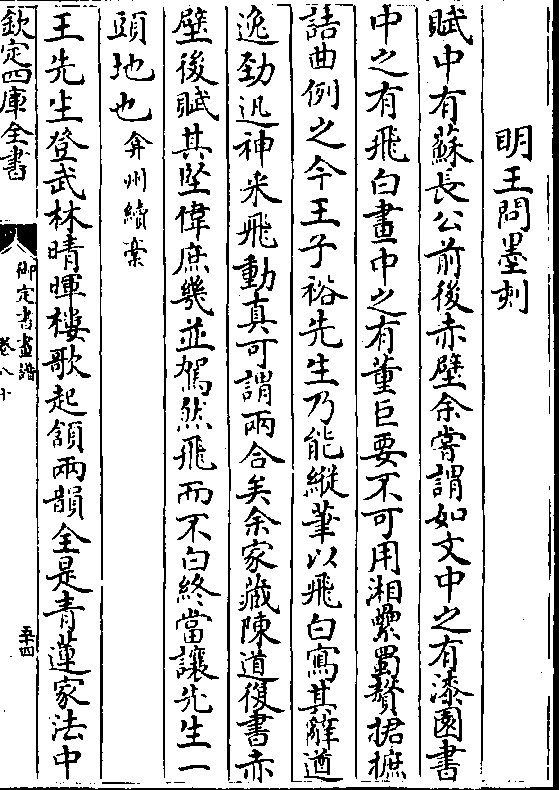 明王問墨刻
賦中有蘇長公前後赤壁余嘗謂如文中之有漆園書
中之有飛白畫中之有董巨要不可用湘纍蜀贅捃摭
詰曲例之今王子裕先生乃能縱筆以飛白寫其辭遒
逸勁迅神采飛動真可謂兩合矣余家藏陳道復書赤
壁後賦其堅偉庶幾並駕然飛而不白終當讓先生一
頭地也弇州續稾
王先生登武林晴暉樓歌起頷兩韻全是青蓮家法中
欽定四庫全書
御定書畫譜
卷八十